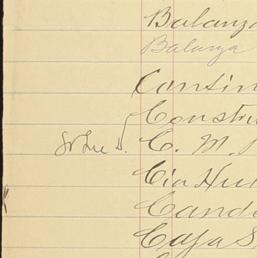 Balanza
Balanza
Consin
Constru
C. M.
Cia Hu
Cand
Caja S